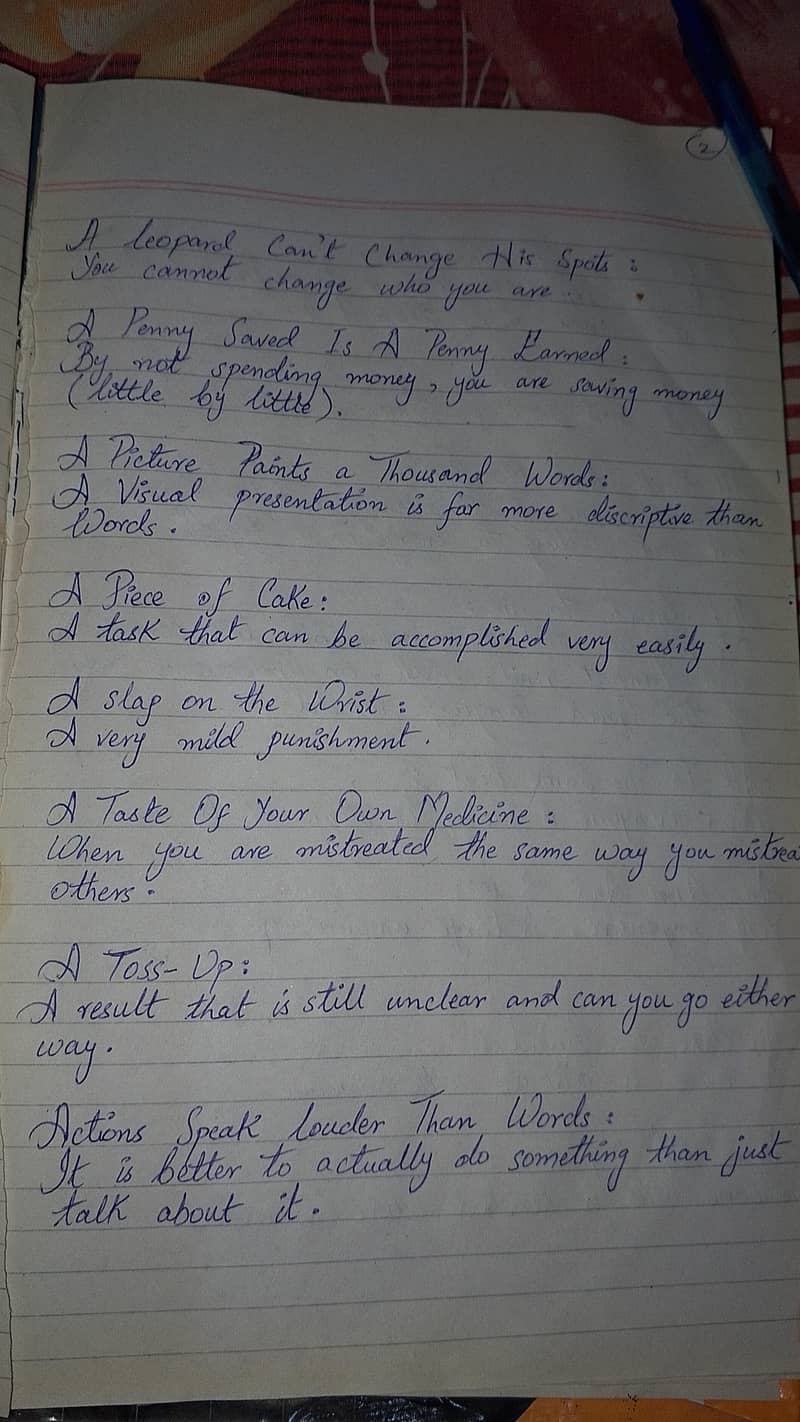 2
A leopard Can't Change His Spots :
You cannot change who you are.
A Penny Saved Is A Penny Earned :
By not spending money, you are saving money
(little by little).
A Picture Paints a Thousand Words :
A Visual presentation is far more discriptive than
Words.
A Piece of Cake :
A task that can be accomplished very easily.
A slap on the Wrist :
A very mild punishment.
A Taste Of Your Own Medicine :
When you are mistreated the same way you mistrea
others.
A Toss-Up :
A result that is still unclear and can you go either
way.
Actions Speak louder Than Words :
It is better to actually do something than just
talk about it.